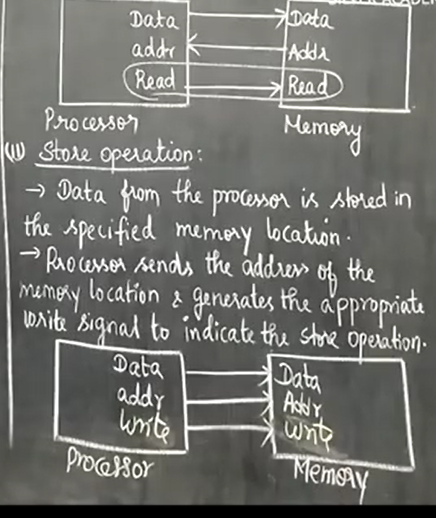 Data Data
addr Addr
Read Read
Processor Memory
(ii) Store operation:
→ Data from the processor is stored in
the specified memory location.
→ Processor sends the address of the
memory location & generates the appropriate
write signal to indicate the store operation.
Data Data
addr Addr
Write Write
Processor Memory